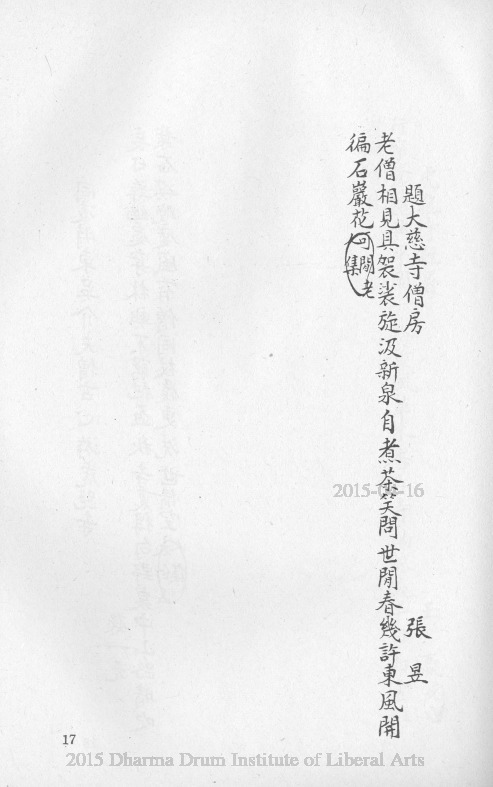 題大慈寺僧房
張昱
老僧相見具袈裟旋汲新泉自煮茶笑問世閒春幾許東風開
徧石巖花可閒老集
17
2015 Dharma Drum Institute of Liberal Arts